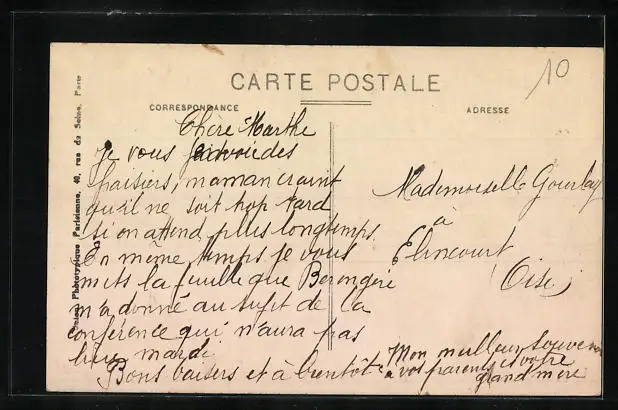 CARTE POSTALE
CORRESPONDANCE
ADRESSE
10
Chère Marthe
je vous envoie des
fraisiers, maman craint
qu'il ne soit trop tard
si on attend plus longtemps.
En même temps je vous
mets la feuille que Berengère
m'a donné au sujet de la
conférence qui n'aura pas
lieu mardi
Bons baisers et à bientôt
Mon meilleur souvenir
à vos parents votre
grand mère
Mademoiselle Gourlay
à
Elincourt
Oise
Phototypique Parisienne, 40, rue de Seine, Paris